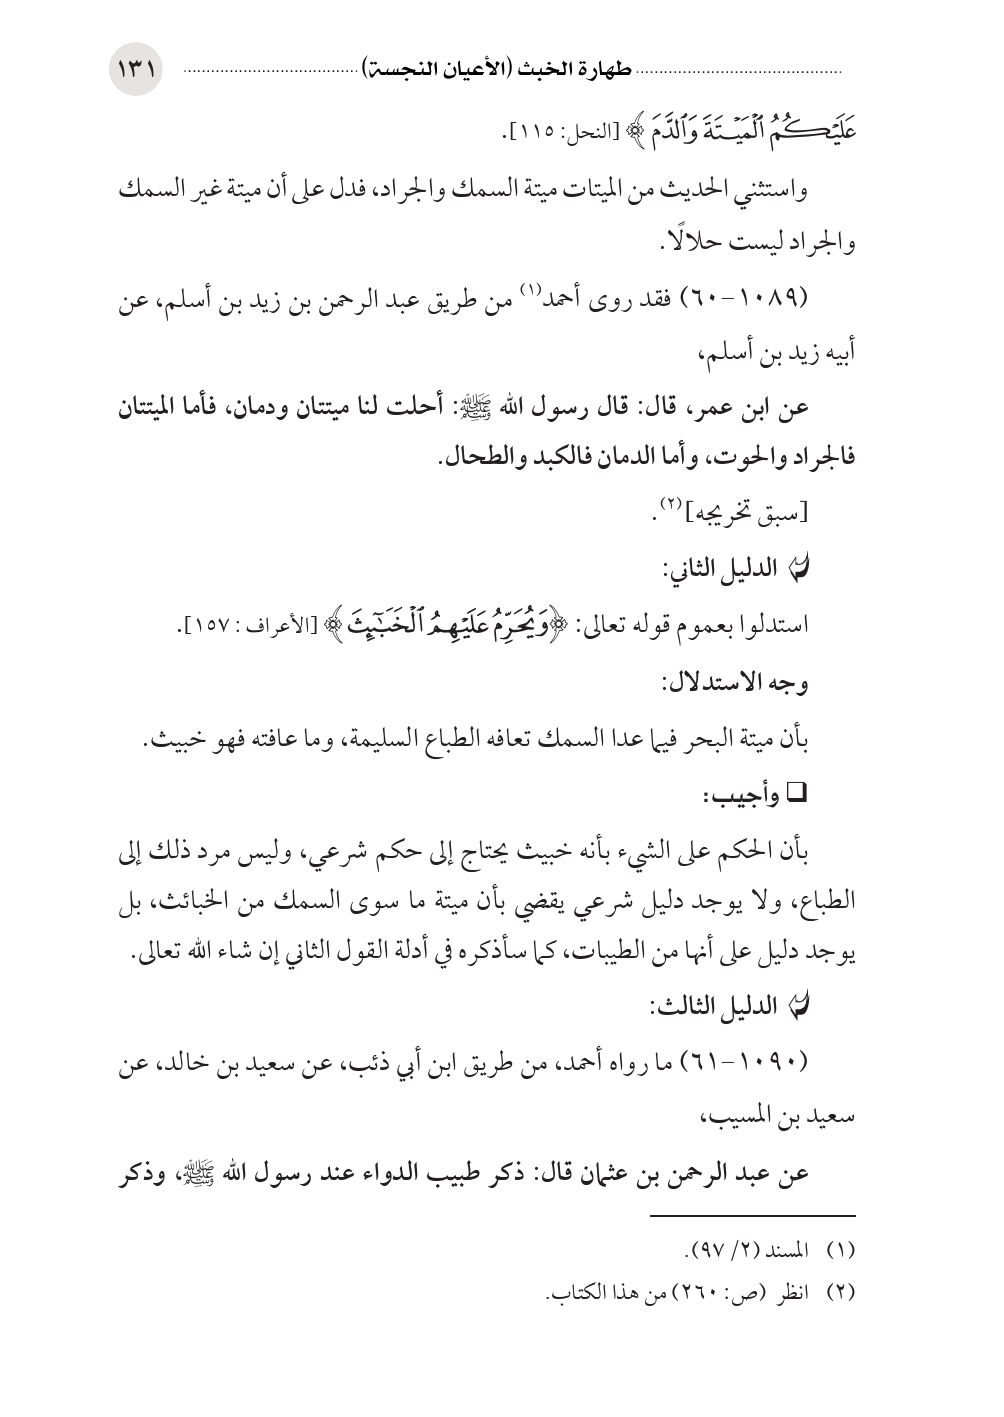 طهارة الخبث (الأعيان النجسة) ١٣١
عَلَيۡكُمُ ٱلۡمَيۡتَةَ وَٱلدَّمَ ﴾ [النحل: ١١٥].
واستثني الحديث من الميتات ميتة السمك والجراد، فدل على أن ميتة غير السمك
والجراد ليست حلالًا.
(١٠٨٩-٦٠) فقد روى أحمد(١) من طريق عبد الرحمن بن زيد بن أسلم، عن
أبيه زيد بن أسلم،
عن ابن عمر، قال: قال رسول الله ﷺ: أحلت لنا ميتتان ودمان، فأما الميتتان
فالجراد والحوت، وأما الدمان فالكبد والطحال.
[سبق تخريجه](٢).
الدليل الثاني:
استدلوا بعموم قوله تعالى: ﴿وَيُحَرِّمُ عَلَيۡهِمُ ٱلۡخَبَٰٓئِثَ ﴾ [الأعراف : ١٥٧].
وجه الاستدلال:
بأن ميتة البحر فيما عدا السمك تعافه الطباع السليمة، وما عافته فهو خبيث.
❑ وأجيب:
بأن الحكم على الشيء بأنه خبيث يحتاج إلى حكم شرعي، وليس مرد ذلك إلى
الطباع، ولا يوجد دليل شرعي يقضي بأن ميتة ما سوى السمك من الخبائث، بل
يوجد دليل على أنها من الطيبات، كما سأذكره في أدلة القول الثاني إن شاء الله تعالى.
الدليل الثالث:
(١٠٩٠-٦١) ما رواه أحمد، من طريق ابن أبي ذئب، عن سعيد بن خالد، عن
سعيد بن المسيب،
عن عبد الرحمن بن عثمان قال: ذكر طبيب الدواء عند رسول الله ﷺ، وذكر
(١) المسند (٢/ ٩٧).
(٢) انظر (ص: ٢٦٠) من هذا الكتاب.